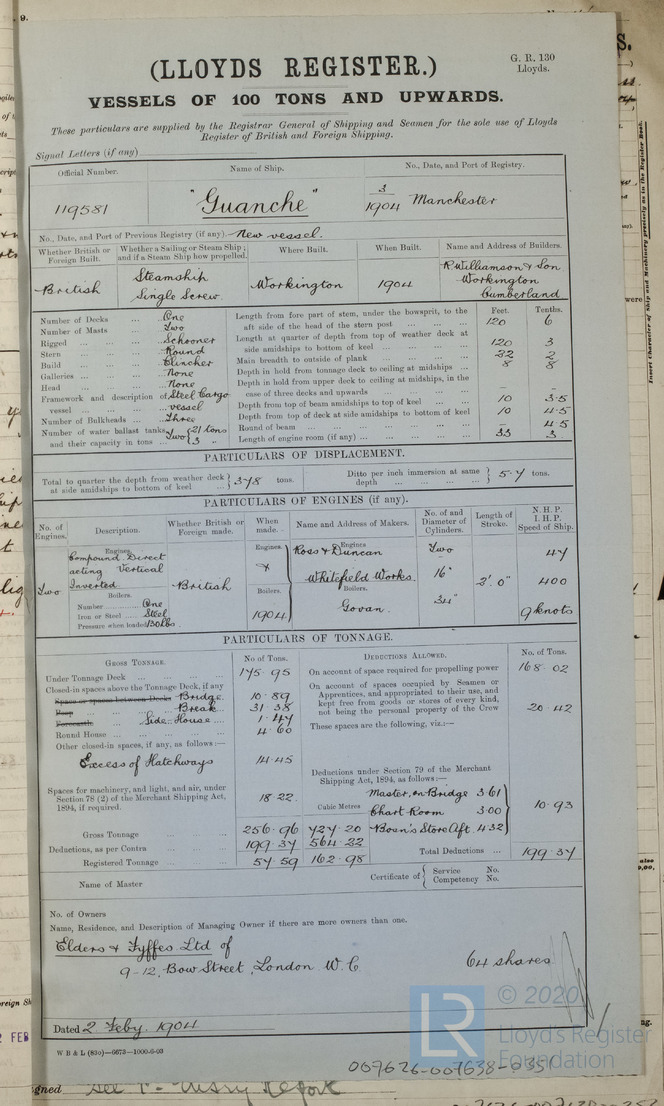 (LLOYDS REGISTER.)
G. R. 130
Lloyds.
VESSELS OF 100 TONS AND UPWARDS.
These particulars are supplied by the Registrar General of Shipping and Seamen for the sole use of Lloyds
Register of British and Foreign Shipping.
Signal Letters (if any)
Official Number. Name of Ship. No., Date, and Port of Registry.
119581 "Guanche" 3/1904 Manchester
No., Date, and Port of Previous Registry (if any). New vessel.
Whether British or Foreign Built. Whether a Sailing or Steam Ship; and if a Steam Ship how propelled. Where Built. When Built. Name and Address of Builders.
British Steamship Single Screw. Workington 1904 R. Williamson & Son Workington Cumberland
Number of Decks ... One
Number of Masts ... Two
Rigged ... Schooner
Stern ... Round
Build ... Clincher
Galleries ... None
Head ... None
Framework and description of vessel ... Steel Cargo vessel
Number of Bulkheads ... Three
Number of water ballast tanks, and their capacity in tons ... Two { 21 tons 3 "
Feet. Tenths.
Length from fore part of stem, under the bowsprit, to the aft side of the head of the stern post ... 120 6
Length at quarter of depth from top of weather deck at side amidships to bottom of keel ... 120 3
Main breadth to outside of plank ... 22 2
Depth in hold from tonnage deck to ceiling at midships ... 8 8
Depth in hold from upper deck to ceiling at midships, in the case of three decks and upwards ... - -
Depth from top of beam amidships to top of keel ... 10 3·5
Depth from top of deck at side amidships to bottom of keel 10 4·5
Round of beam ... - 4·5
Length of engine room (if any) ... 33 3
PARTICULARS OF DISPLACEMENT.
Total to quarter the depth from weather deck at side amidships to bottom of keel ... } 378 tons. Ditto per inch immersion at same depth ... } 5·7 tons.
PARTICULARS OF ENGINES (if any).
No. of Engines. Description. Whether British or Foreign made. When made. Name and Address of Makers. No. of and Diameter of Cylinders. Length of Stroke. N. H. P. I. H. P. Speed of Ship.
Engines. Engines. Engines.
Compound Direct Ross & Duncan Two 47
acting Vertical
Two Inverted British Whitefield Works. 16" 2'. 0" 400
Boilers. Boilers. Boilers.
Number One Govan. 34"
Iron or Steel Steel 1904 9 knots
Pressure when loaded 130 lbs.
PARTICULARS OF TONNAGE.
GROSS TONNAGE. No. of Tons. DEDUCTIONS ALLOWED. No. of Tons.
Under Tonnage Deck ... 175·95
Closed-in spaces above the Tonnage Deck, if any
Space or spaces between Decks Bridge 10·89
Poop Break 31·38
Forecastle Side House 1·47
Round House ... 4·60
Other closed-in spaces, if any, as follows:—
Excess of Hatchways 14·45
Spaces for machinery, and light, and air, under Section 78 (2) of the Merchant Shipping Act, 1894, if required. 18·22
Gross Tonnage ... 256·96 727·20
Deductions, as per Contra ... 199·37 564·22
Registered Tonnage ... 57·59 162·98
On account of space required for propelling power 168·02
On account of spaces occupied by Seamen or Apprentices, and appropriated to their use, and kept free from goods or stores of every kind, not being the personal property of the Crew 20·42
These spaces are the following, viz.:—
Deductions under Section 79 of the Merchant Shipping Act, 1894, as follows:—
Cubic Metres
Master, on Bridge 3·61
Chart Room 3·00
Bosn's Store Aft. 4·32
10·93
Total Deductions ... 199·37
Name of Master
Certificate of { Service No. Competency No.
No. of Owners
Name, Residence, and Description of Managing Owner if there are more owners than one.
Elders & Fyffes Ltd of
9-12, Bow Street, London W. C 64 shares
Dated 2 Feby. 1904
W B & L (83o)—6673—1000-6-03
LR
© 2020
Lloyd's Register
Foundation
007626-007638-0351